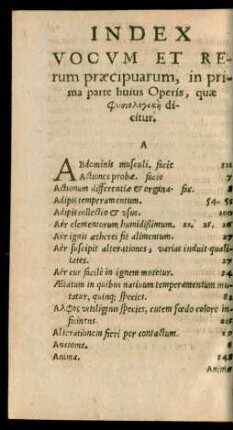 INDEX
VOCVM ET RE-
rum præcipuarum, in pri
ma parte huius Operis, quæ
φυσιολογικὴ di-
citur.
A
ABdominis musculi. facie
Actiones probæ. facie 7
Actionum differentiæ & origina- fac. 8
Adipis temperamentum. 54. 56
Adipis collectio & usus. 100
Aër elementorum humidissimum. 22. 25. 26
Aër ignis ætherei fit alimentum. 27
Aër suscipit alterationes, varias induit quali
tates. 27
Aër cur facilè in ignem mutetur. 24
Ætatum in quibus natiuum temperamentum mu-
tatur, quinq; species. 82
Ἀλφὸς uitiliginis species, cutem fœdo colore in-
ficiens.
Alterationem fieri per contactum. 17
Anatome. 8
Anima. 248
Anima